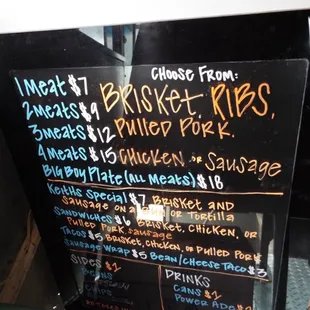 CHOOSE FROM:
1 MEAT $7
2 MEATS $9
BRISKET, RIBS,
3 MEATS $12
PULLED PORK,
4 MEATS $15
CHICKEN OR SAUSAGE
BIG BOY PLATE (ALL MEATS) $18
KEITHS SPECIAL $7 BRISKET AND
SAUSAGE ON A OR TORTILLA
SANDWICHES $6 BRISKET, CHICKEN, OR
PULLED PORK SAUSAGE
TACOS $5 BRISKET, CHICKEN, OR PULLED PORK
SAUSAGE WRAP $5 BEAN/CHEESE TACO $3
SIDES $1
DRINKS
CANS $1
POWER ADE